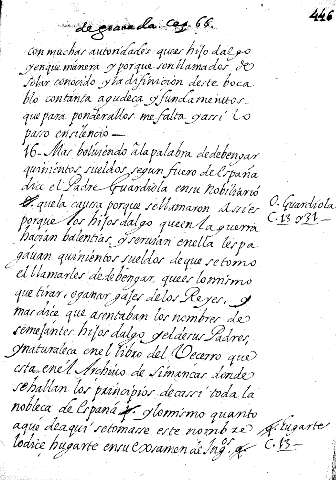 de granada Cap. 66.
446
con muchas autoridades ques hijo dalgo
y en que manera y porque son llamados de
solar conocido, y la difinicion deste boca
blo con tanta agudeça y fundamentos
que para ponderallos me falta y assi lo
paso en silencio —
16 - Mas bolviendo a la palabra de debengar
quinientos sueldos segun fuero de España
dice el Padre Guardiola en su nobiliario
que la causa porque se llamaron assi es
porque los hijos dalgo que en la guerra
hacian balentias, y servian en ella les pa
gavan quinientos sueldos de que se tomo
el llamarles de debengar, que es lo mismo
que tirar, o ganar gajes de los Reyes, y
mas dice que asentaban los nombres de
semejantes hijos dalgo y el de sus Padres,
y naturaleça en el libro del Vecerro que
esta en el Archivo de Simancas donde
se hallan los principios de cassi toda la
nobleça de España y lo mismo quanto
a que de aqui se tomasse este nombre
lo dice hugarte en su Examen de Ingos.
O. Guardiola
C. 13 y 31 -
Hugarte
C. 13 -